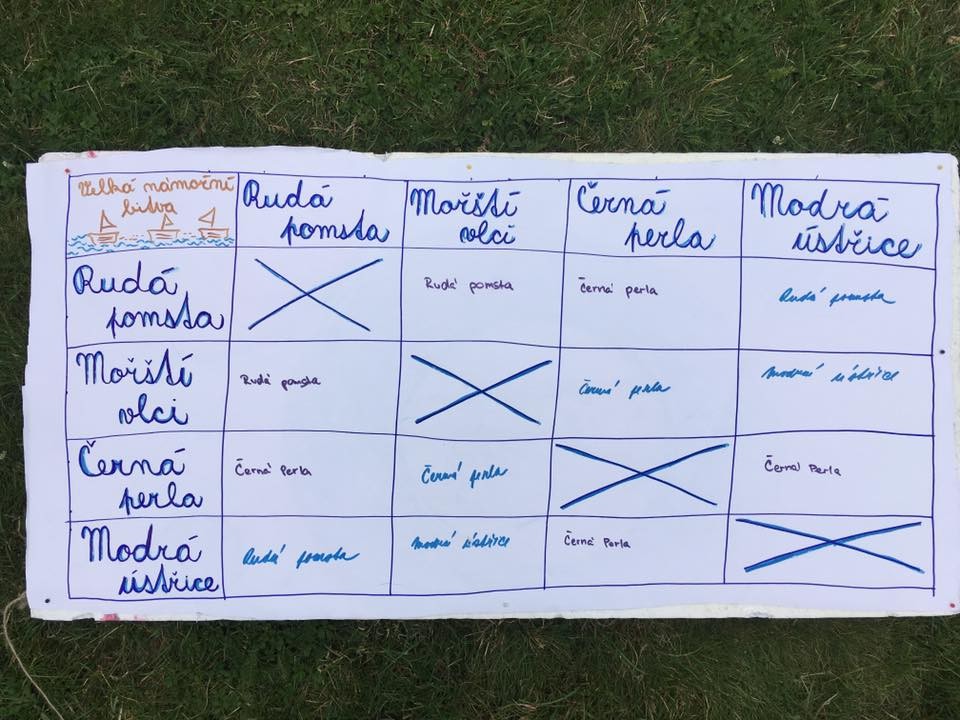 Velká námořní
bitva
Rudá
pomsta
Mořští
vlci
Černá
perla
Modrá
ústřice
Rudá
pomsta
Rudá pomsta
Černá perla
Rudá pomsta
Mořští
vlci
Rudá pomsta
Černá perla
Modrá ústřice
Černá
perla
Černá Perla
Černá perla
Černá Perla
Modrá
ústřice
Rudá pomsta
Modrá ústřice
Černá Perla